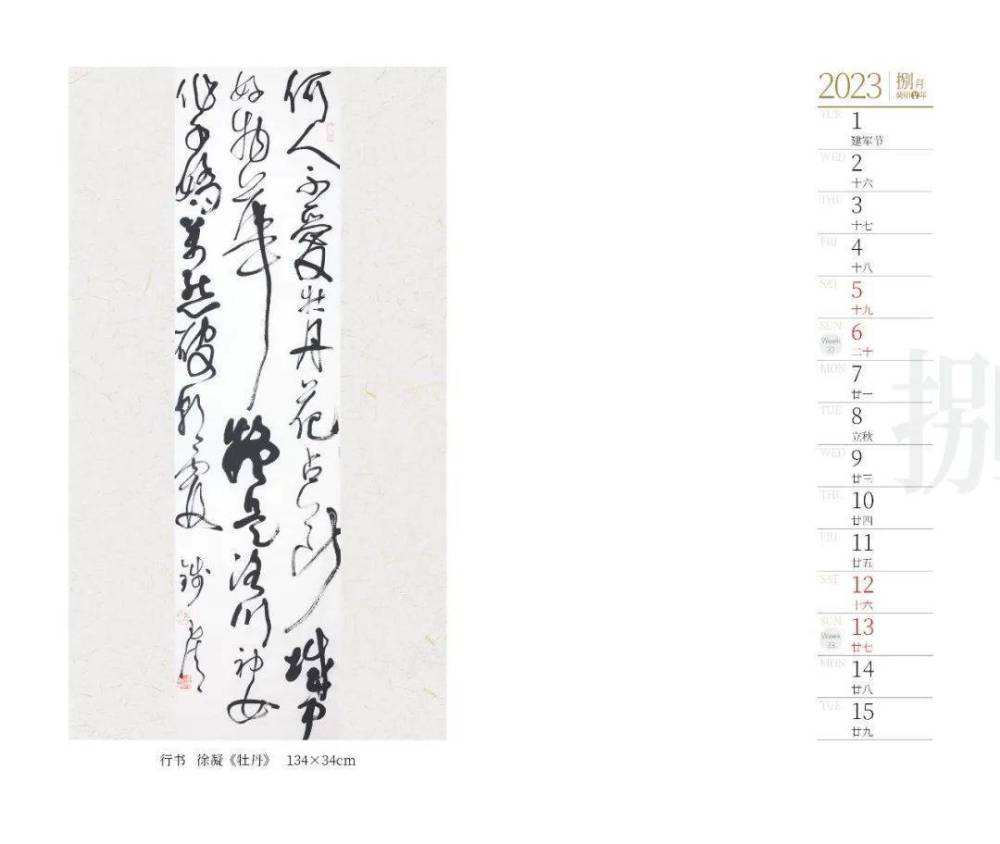 何人不愛牡丹花占斷城中
好物華疑是洛川神女
作千嬌萬態破朝霞
行书 徐凝《牡丹》 134×34cm
2023 捌月
癸卯年
TUE 1
建军节
WED 2
十六
THU 3
十七
FRI 4
十八
SAT 5
十九
SUN 6
Week 32 二十
MON 7
廿一
TUE 8
立秋
WED 9
廿三
THU 10
廿四
FRI 11
廿五
SAT 12
十六
SUN 13
Week 33 廿七
MON 14
廿八
TUE 15
廿九
捌